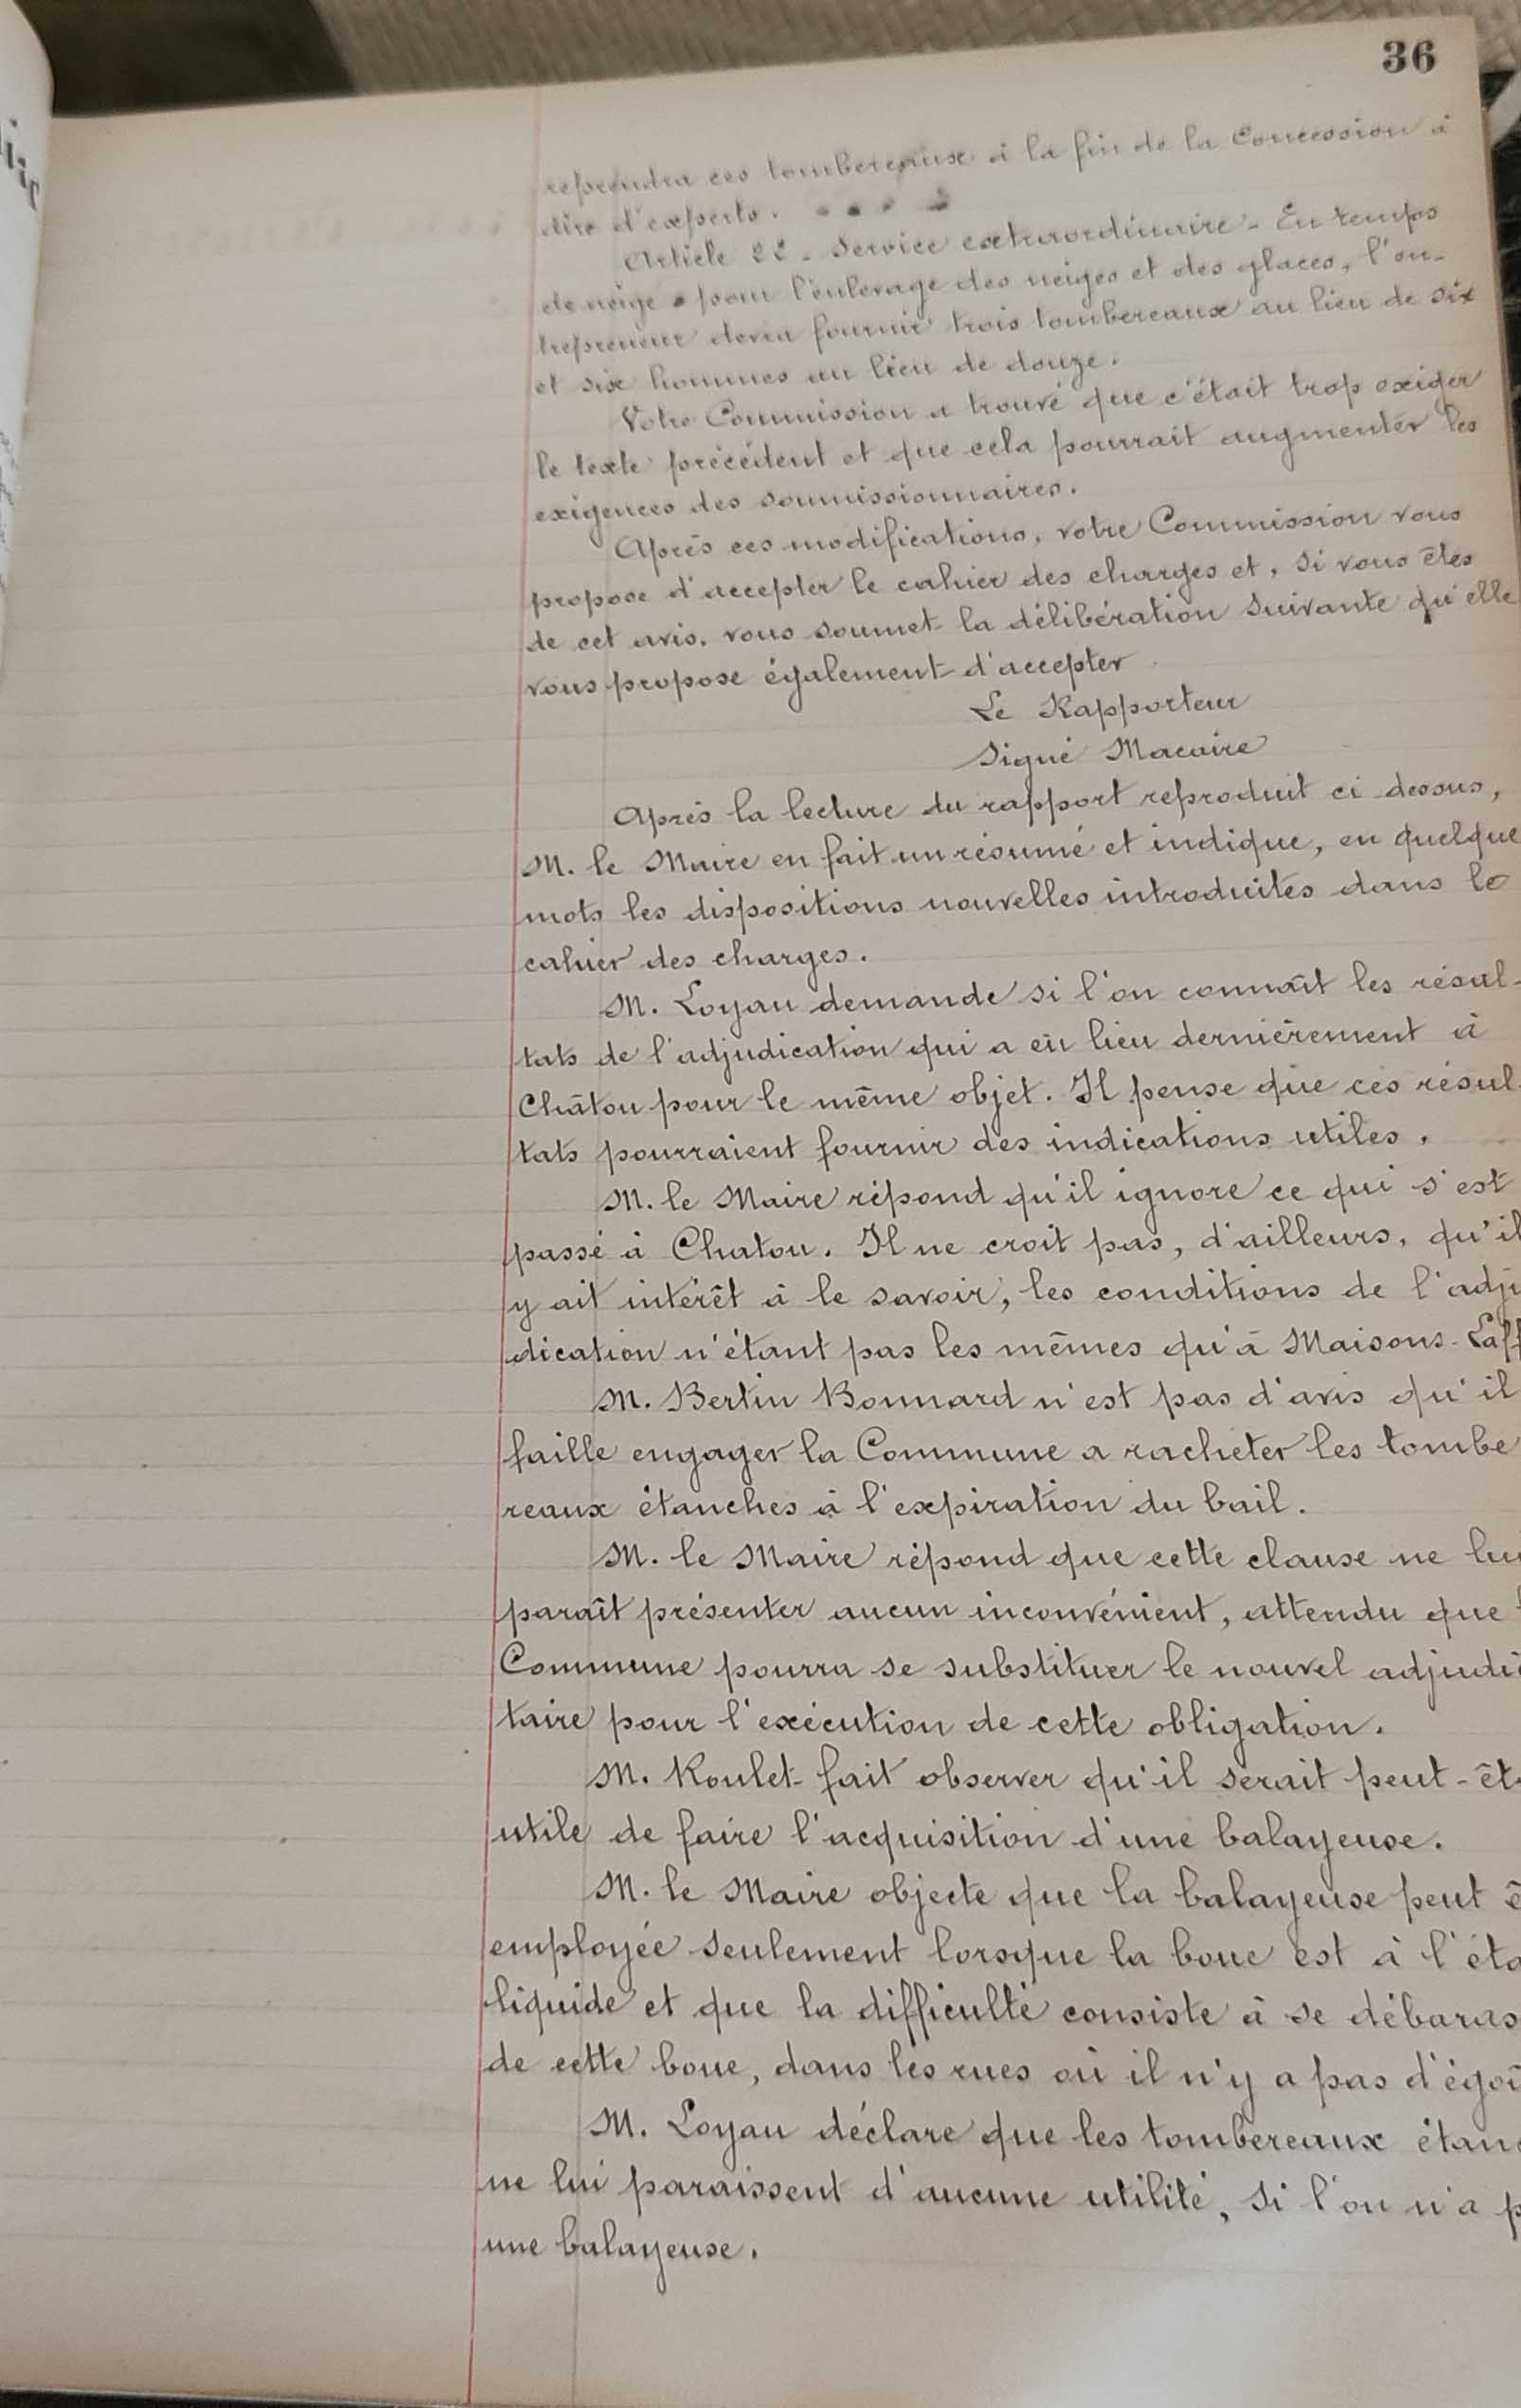 36
reprendra ces tombereaux à la fin de la Concession à
dire d'experts.
Article 22 - Service extraordinaire - En temps
de neige pour l'enlevage des neiges et des glaces, l'en-
trepreneur devra fournir trois tombereaux au lieu de six
et six hommes au lieu de douze.
Votre Commission a trouvé que c'était trop exiger
le texte précédent et que cela pourrait augmenter les
exigences des soumissionnaires.
Après ces modifications, votre Commission vous
propose d'accepter le cahier des charges et, si vous êtes
de cet avis, vous soumet la délibération suivante qu'elle
vous propose également d'accepter
Le Rapporteur
Signé Macaire
Après la lecture du rapport reproduit ci dessus,
M. le Maire en fait un résumé et indique, en quelque
mots les dispositions nouvelles introduites dans le
cahier des charges.
M. Loyau demande si l'on connaît les résul-
tats de l'adjudication qui a eu lieu dernièrement à
Châtou pour le même objet. Il pense que ces résul-
tats pourraient fournir des indications utiles.
M. le Maire répond qu'il ignore ce qui s'est
passé à Chatou. Il ne croit pas, d'ailleurs, qu'il
y ait intérêt à le savoir, les conditions de l'adju
dication n'étant pas les mêmes qu'à Maisons-Laff
M. Bertin Bonnard n'est pas d'avis qu'il
faille engager la Commune a racheter les tombe
reaux étanches à l'expiration du bail.
M. le Maire répond que cette clause ne lui
paraît présenter aucun inconvénient, attendu que
Commune pourra se substituer le nouvel adjudi
taire pour l'exécution de cette obligation.
M. Roulet fait observer qu'il serait peut-êt
utile de faire l'acquisition d'une balayeuse.
M. le Maire objecte que la balayeuse peut ê
employée seulement lorsque la boue est à l'éta
liquide et que la difficulté consiste à se débaras
de cette boue, dans les rues où il n'y a pas d'égoû
M. Loyau déclare que les tombereaux étan
ne lui paraissent d'aucune utilité, si l'on n'a p
une balayeuse.